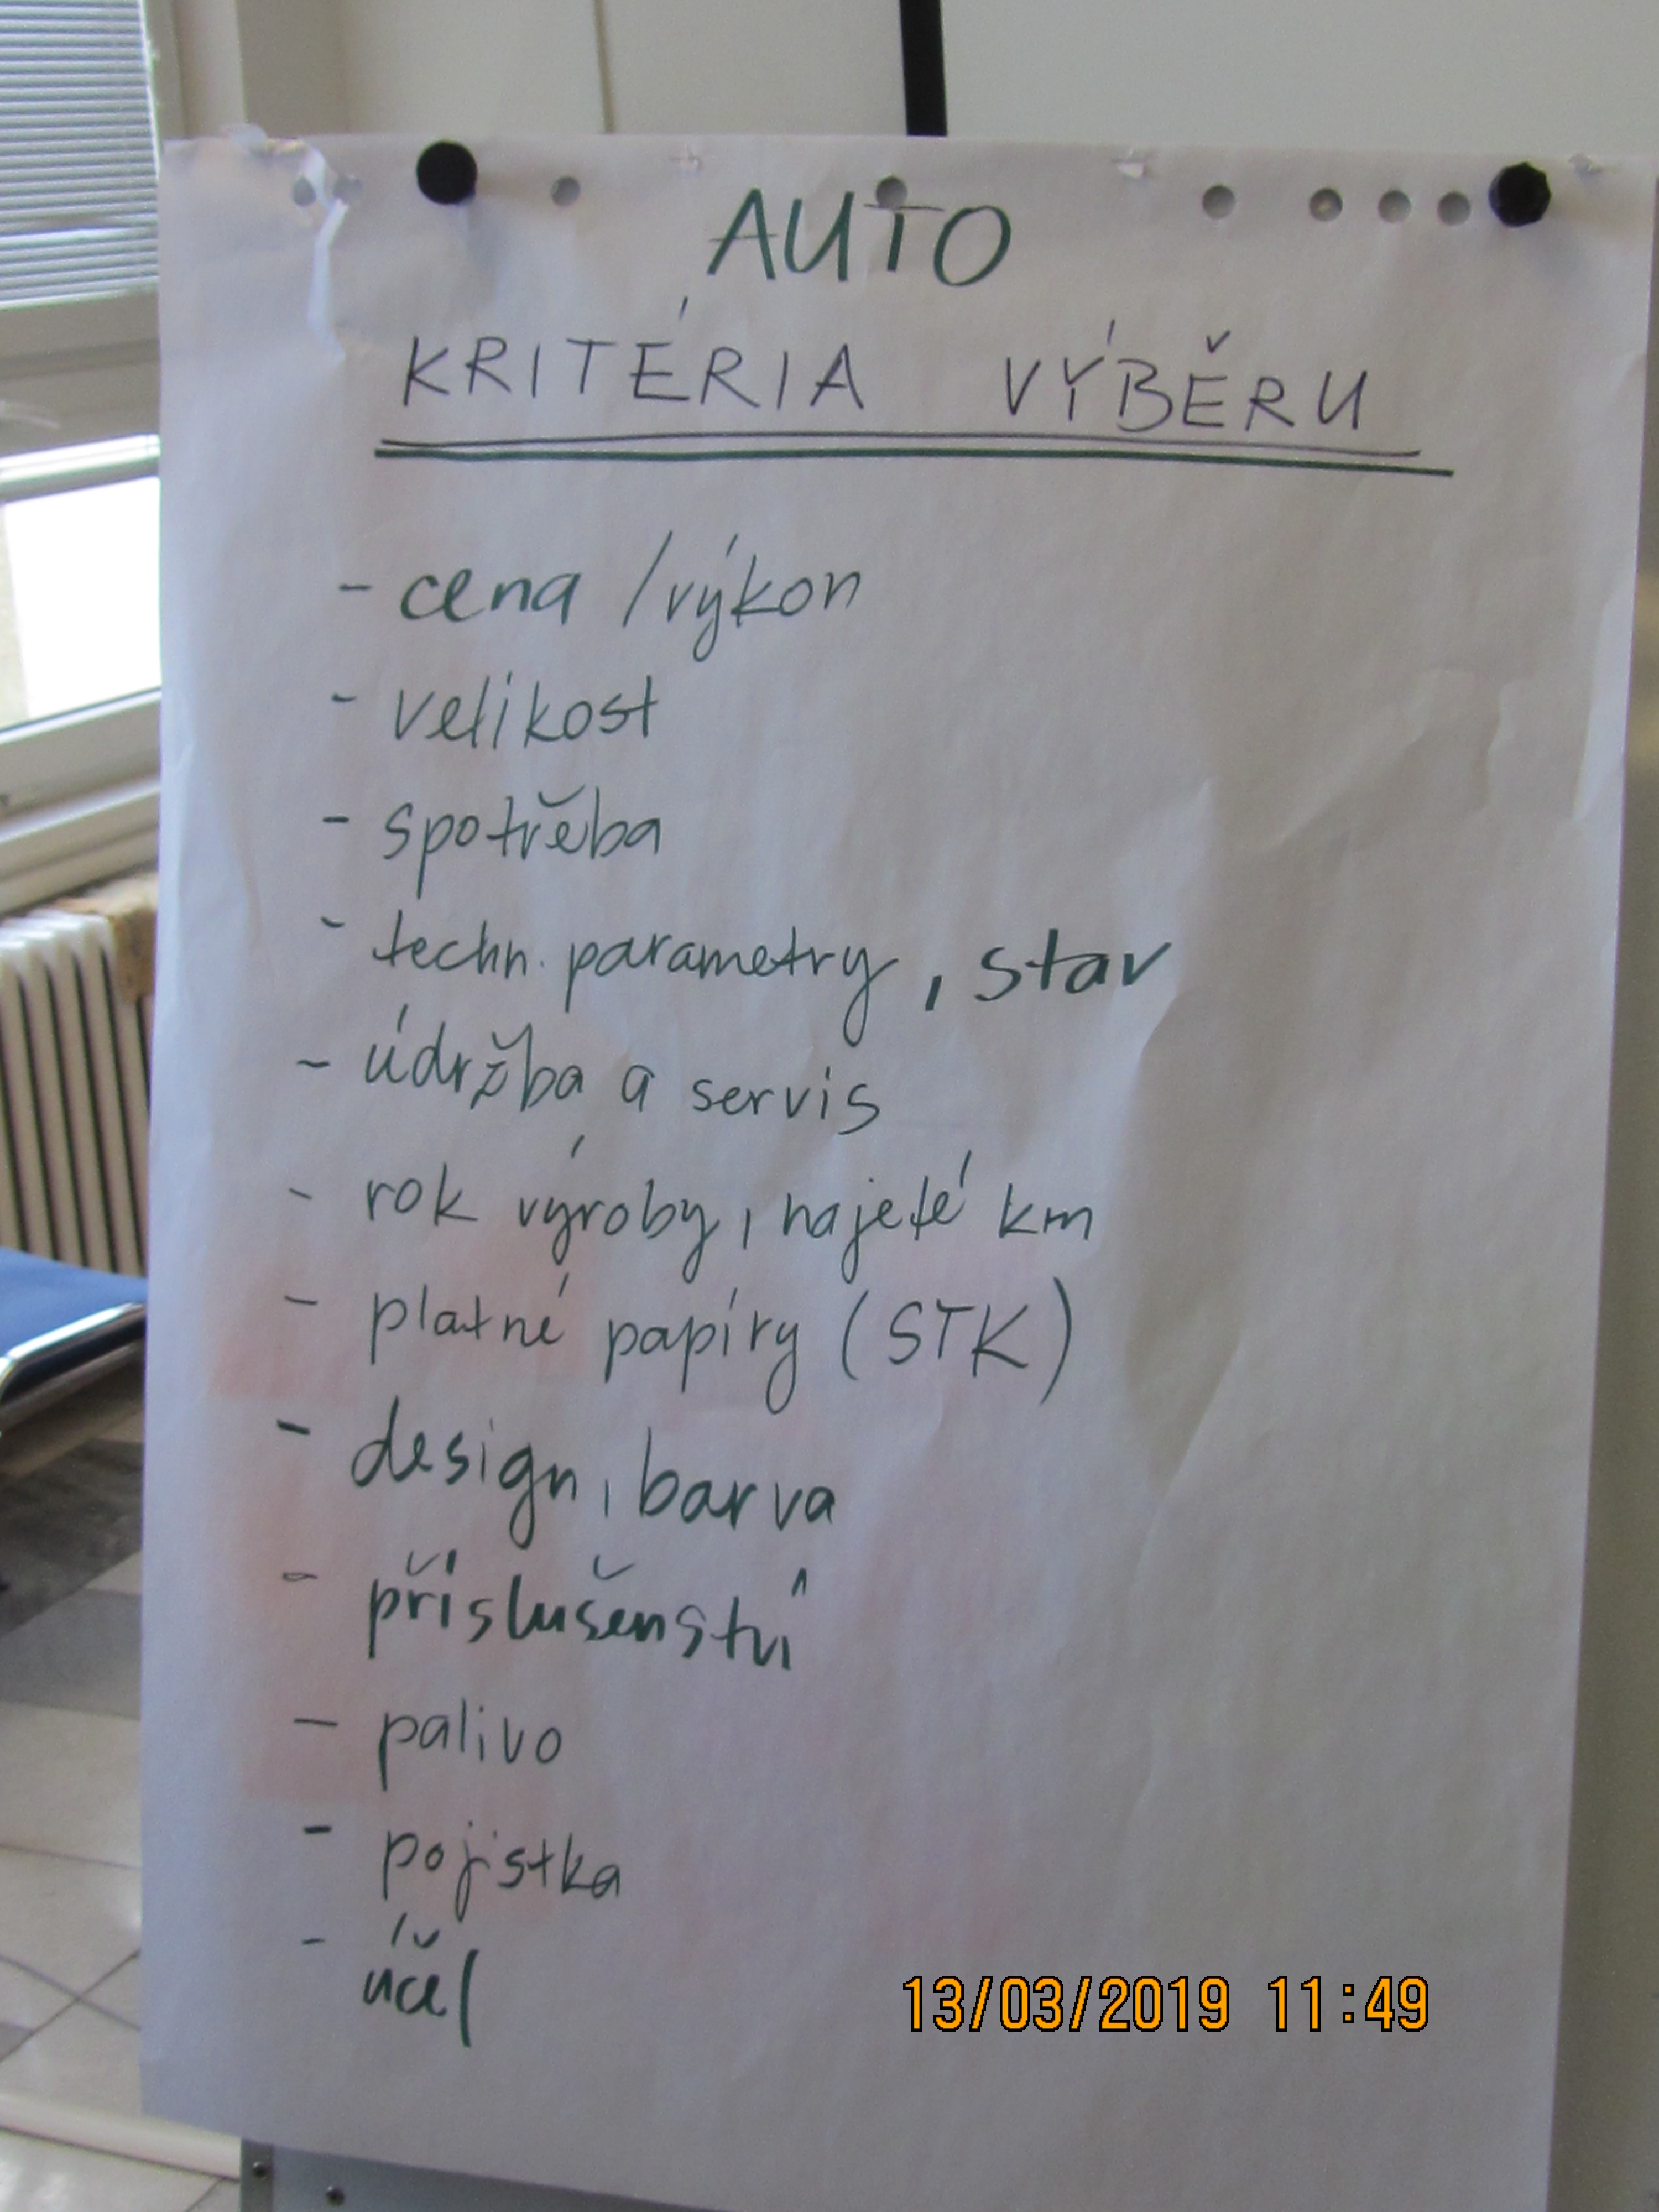 AUTO
KRITÉRIA VÝBĚRU
- cena / výkon
- velikost
- spotřeba
- techn. parametry, stav
- údržba a servis
- rok výroby, najeté km
- platné papíry (STK)
- design, barva
- příslušenství
- palivo
- pojistka
- účel
13/03/2019 11:49